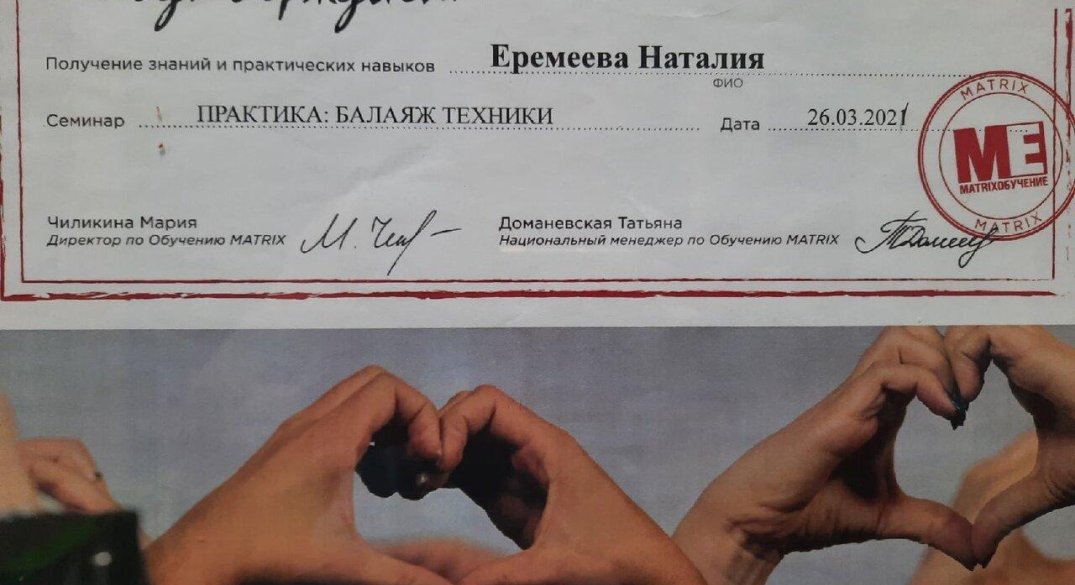 Получение знаний и практических навыков Еремеева Наталия
ФИО
Семинар ПРАКТИКА: БАЛАЯЖ ТЕХНИКИ Дата 26.03.2021
MATRIX
ME
MATRIXОБУЧЕНИЕ
MATRIX
Чиликина Мария
Директор по Обучению MATRIX
Доманевская Татьяна
Национальный менеджер по Обучению MATRIX